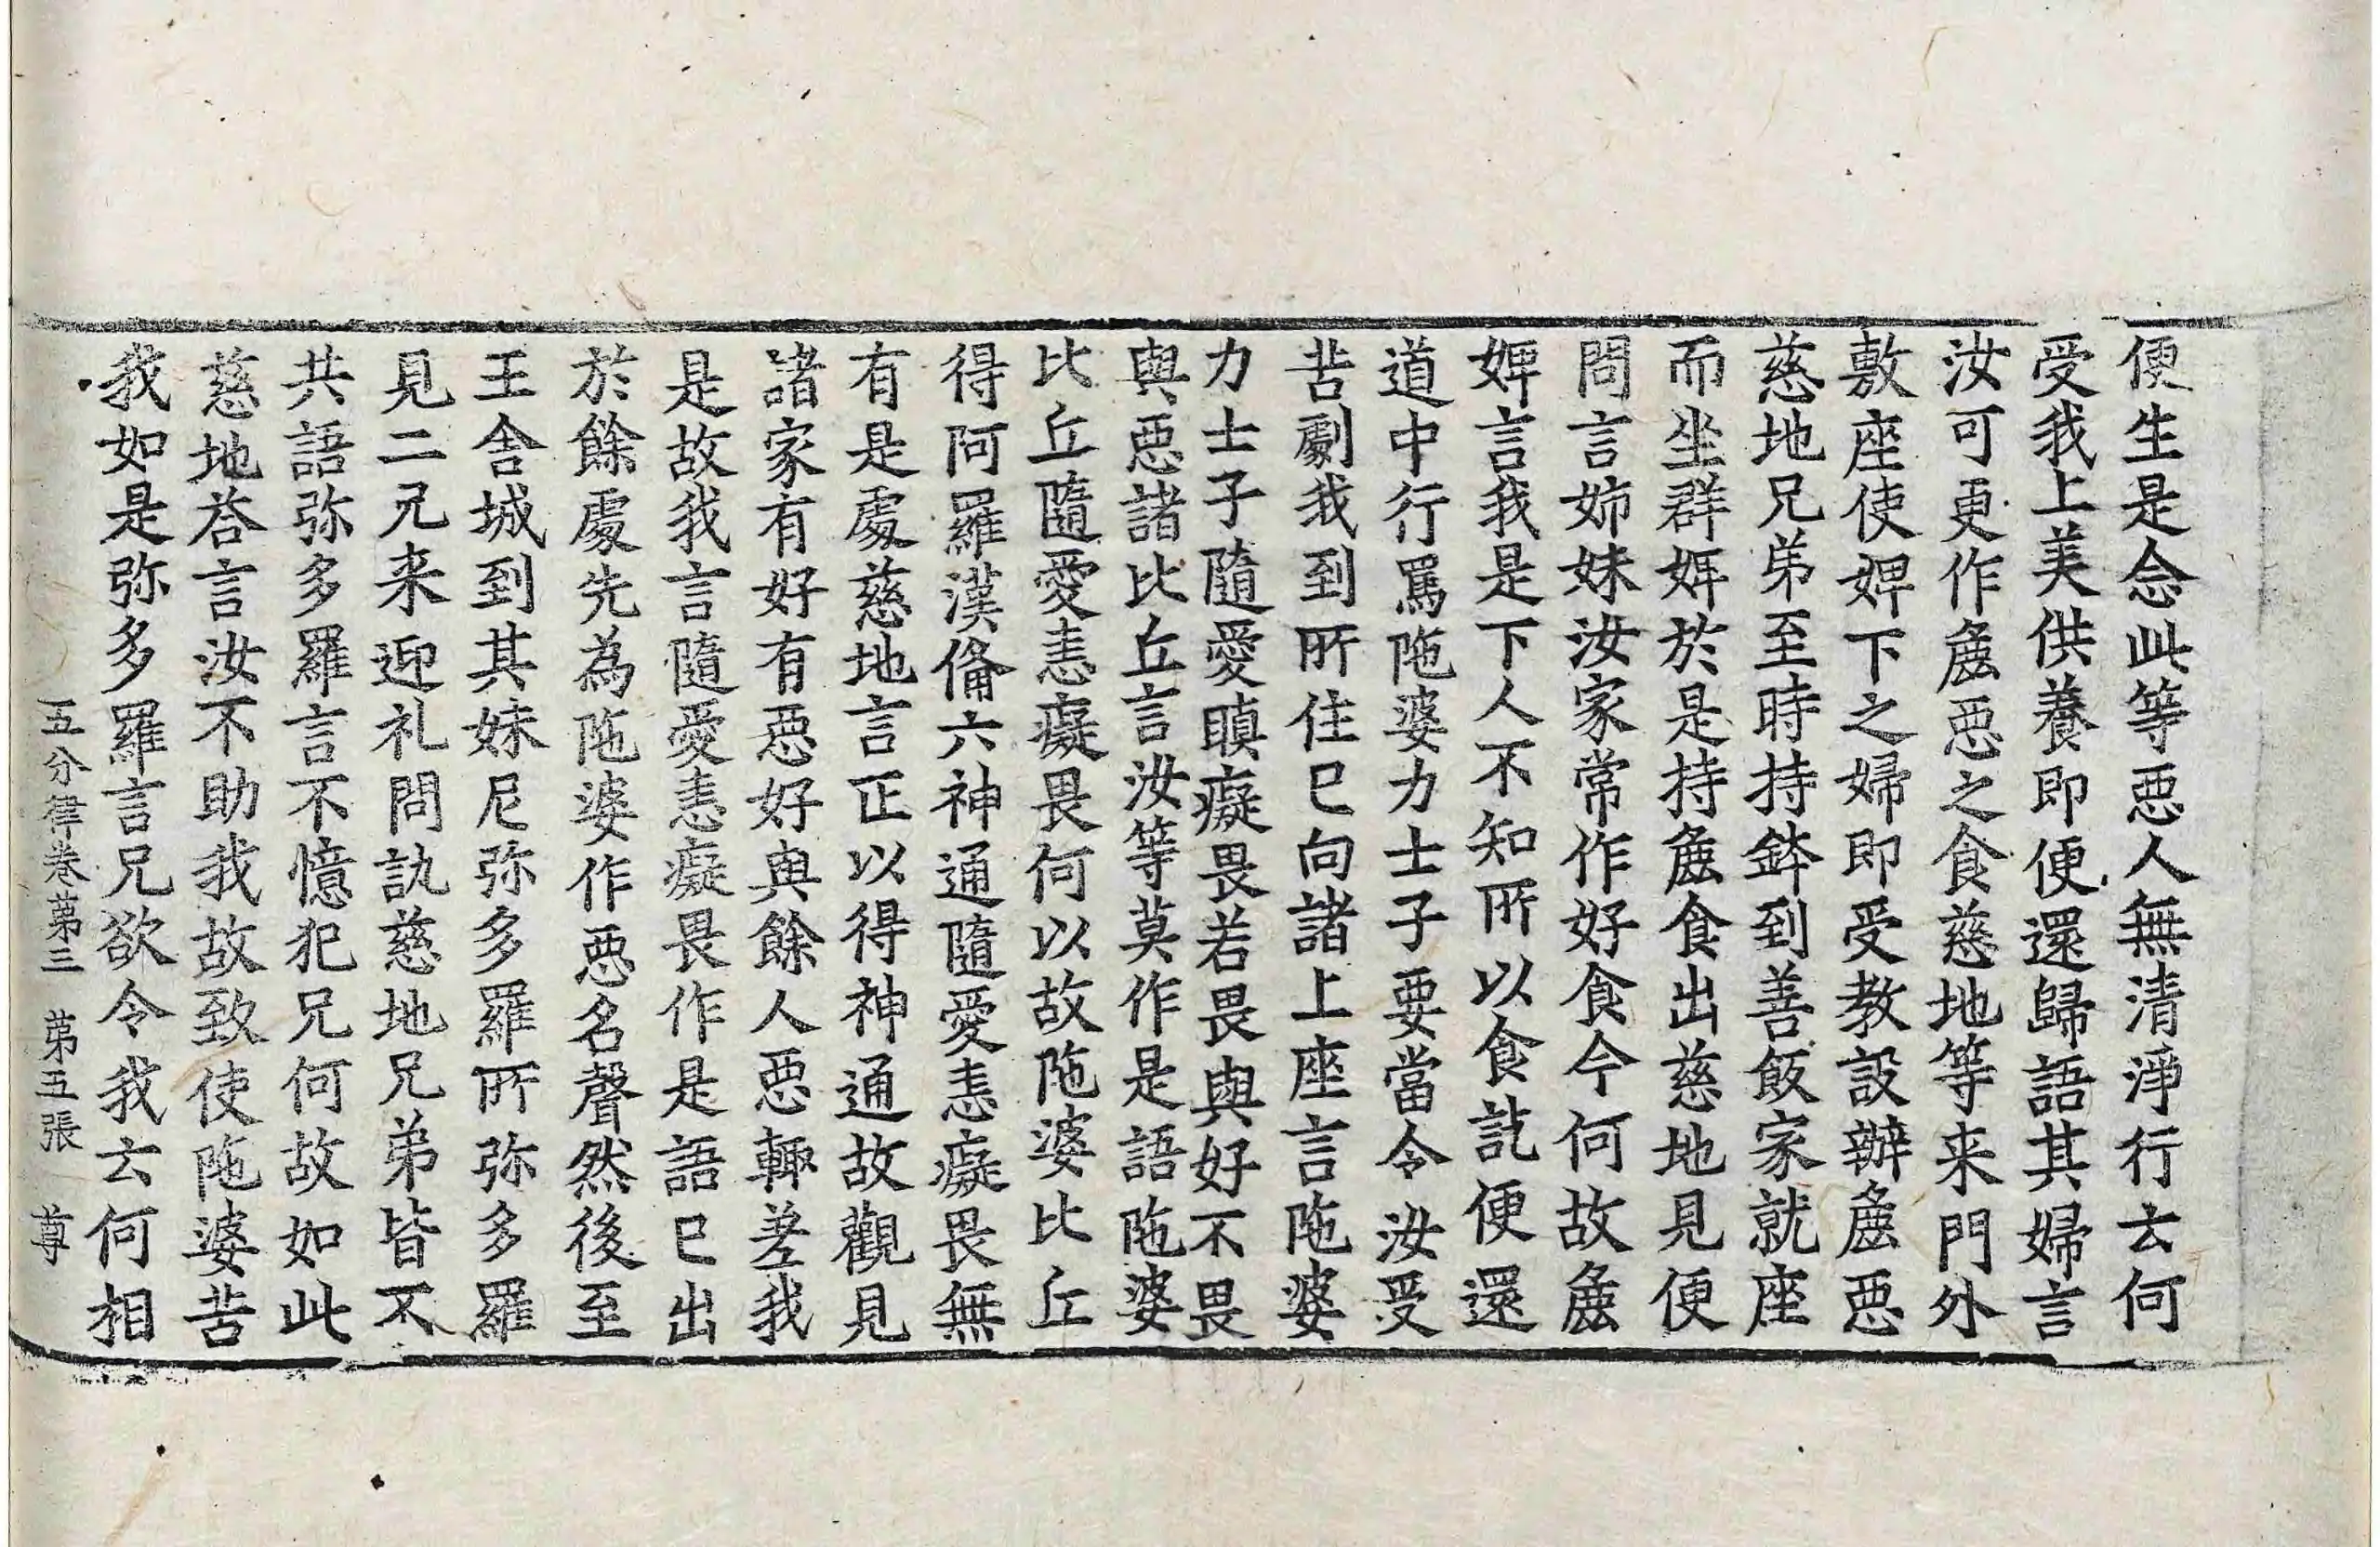 便生是念此等惡人無清淨行云何
受我上美供養即便還歸語其婦言
汝可更作麁惡之食慈地等来門外
敷座使婢下之婦即受教設辦麁惡
慈地兄弟至時持持鉢到善飯家就座
而坐群婢於是持麁食出慈地見便
問言姉妹汝家常作好食今何故麁
婢言我是下人不知所以食訖便還
道中行罵陁婆力士子要當令汝受
苦劇我到所住已向諸上座言陁婆
力士子隨愛瞋癡畏若畏與好不畏
與惡諸比丘言汝等莫作是語陁婆
比丘隨愛恚癡畏何以故陁婆比丘
得阿羅漢俻六神通隨愛恚癡畏無
有是處慈地言正以得神通故觀見
諸家有好有惡好與餘人惡輙差我
是故我言隨愛恚癡畏作是語已出
於餘處先為陁婆作惡名聲然後至
王舍城到其妹尼弥多羅所弥多羅
見二兄来迎礼問訊慈地兄弟皆不
共語弥多羅言不憶犯兄何故如此
慈地荅言汝不助我故致使陁婆苦
我如是弥多羅言兄欲令我云何相
五分律卷第三　第五張　尊